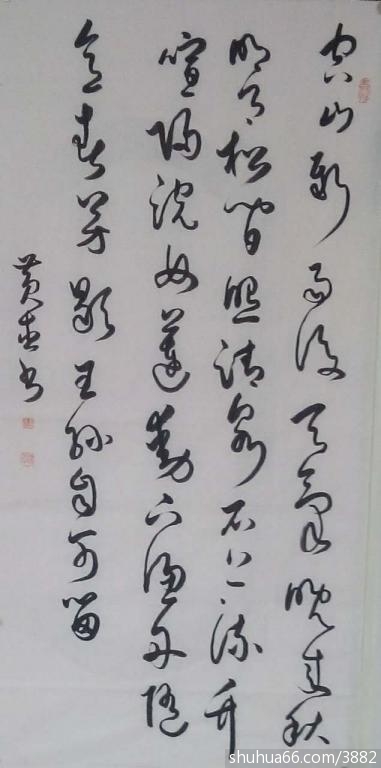 空山新雨後天氣晚來秋
明月松間照清泉石上流竹
喧歸浣女蓮動下漁舟隨
意春芳歇王孫自可留
黄书
shuhua66.com/3882